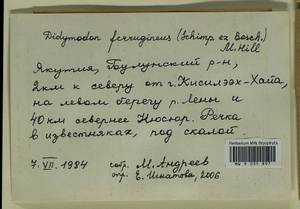 Didymodon ferrugineus (Schimp. ex Besch.)
M. Hill
Якутия, Булунский р-н,
2км к северу от г. Кисилээх-Хайа,
на левом берегу р. Лены и
40 км севернее Кюсюр. Речка
в известняках, под скалой.
7. VII. 1984 собр. М. Андреев
опр. Е. Игнатова, 2006
Herbarium MW, Bryophyta